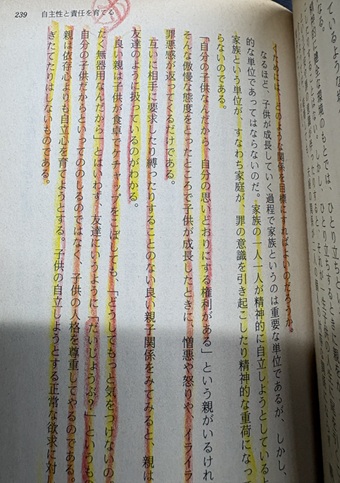 239 自主性と責任を育てる
とな
ためには、どのような関係を目標にすればよいのだろうか。
なるほど、子供が成長していく過程で家族というのは重要な単位であるが、しかし、
的な単位であってはならないのだ。家族の一人一人が精神的に自立しようとしている
家族という単位が、すなわち家庭が、罪の意識を引き起こしたり精神的な重荷になっ
らないのである。
「自分の子なんだから、自分の思いどおりにする権利がある」という親がいるけれ
そんな傲慢な態度をとったところで子供が成長したときに、憎悪や怒りや、イライラ
罪悪感が返ってくるだけである。
互いに相手に要求したり縛ったりすることのない良い親子関係をみてみると、親は
友達のように扱っているのがわかる。
良い親は子供が食卓でケチャップをこぼしても、「どうしてもっと気をつけないの
だく無器用なんだから」とはいわず、友達にいうように「だいじょうぶ？」というも
自分の子供だからといってののしるのではなく、子供の人格を尊重してやるのである。
親は依存心よりも自立心を育てようとする。子供の自立しようとする正常な欲求に対
ぎたてたりはしないものである。